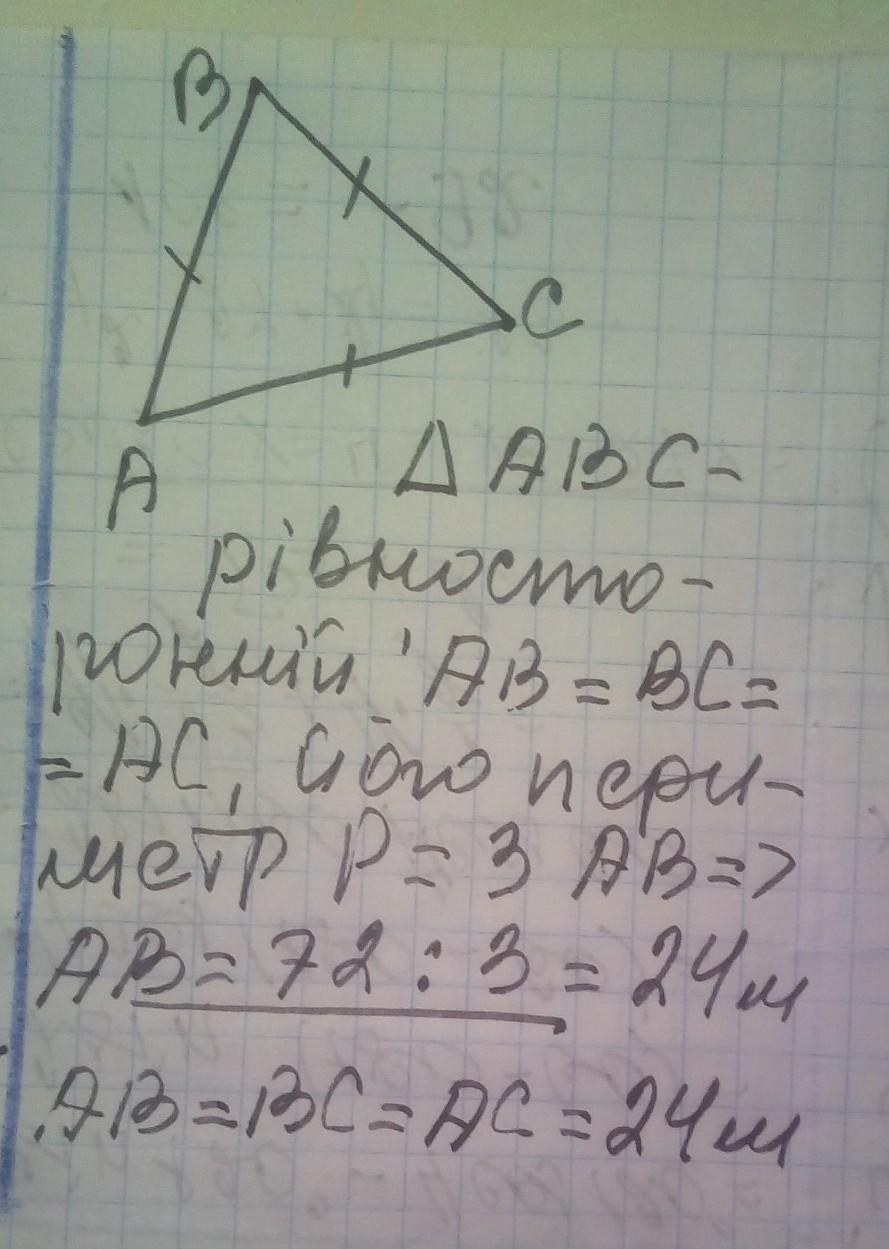 B
C
A
Δ ABC-
рівносто-
ронній, AB = BC =
= AC, його пери-
метр P = 3 AB =>
AB = 72 : 3 = 24м
AB = BC = AC = 24м